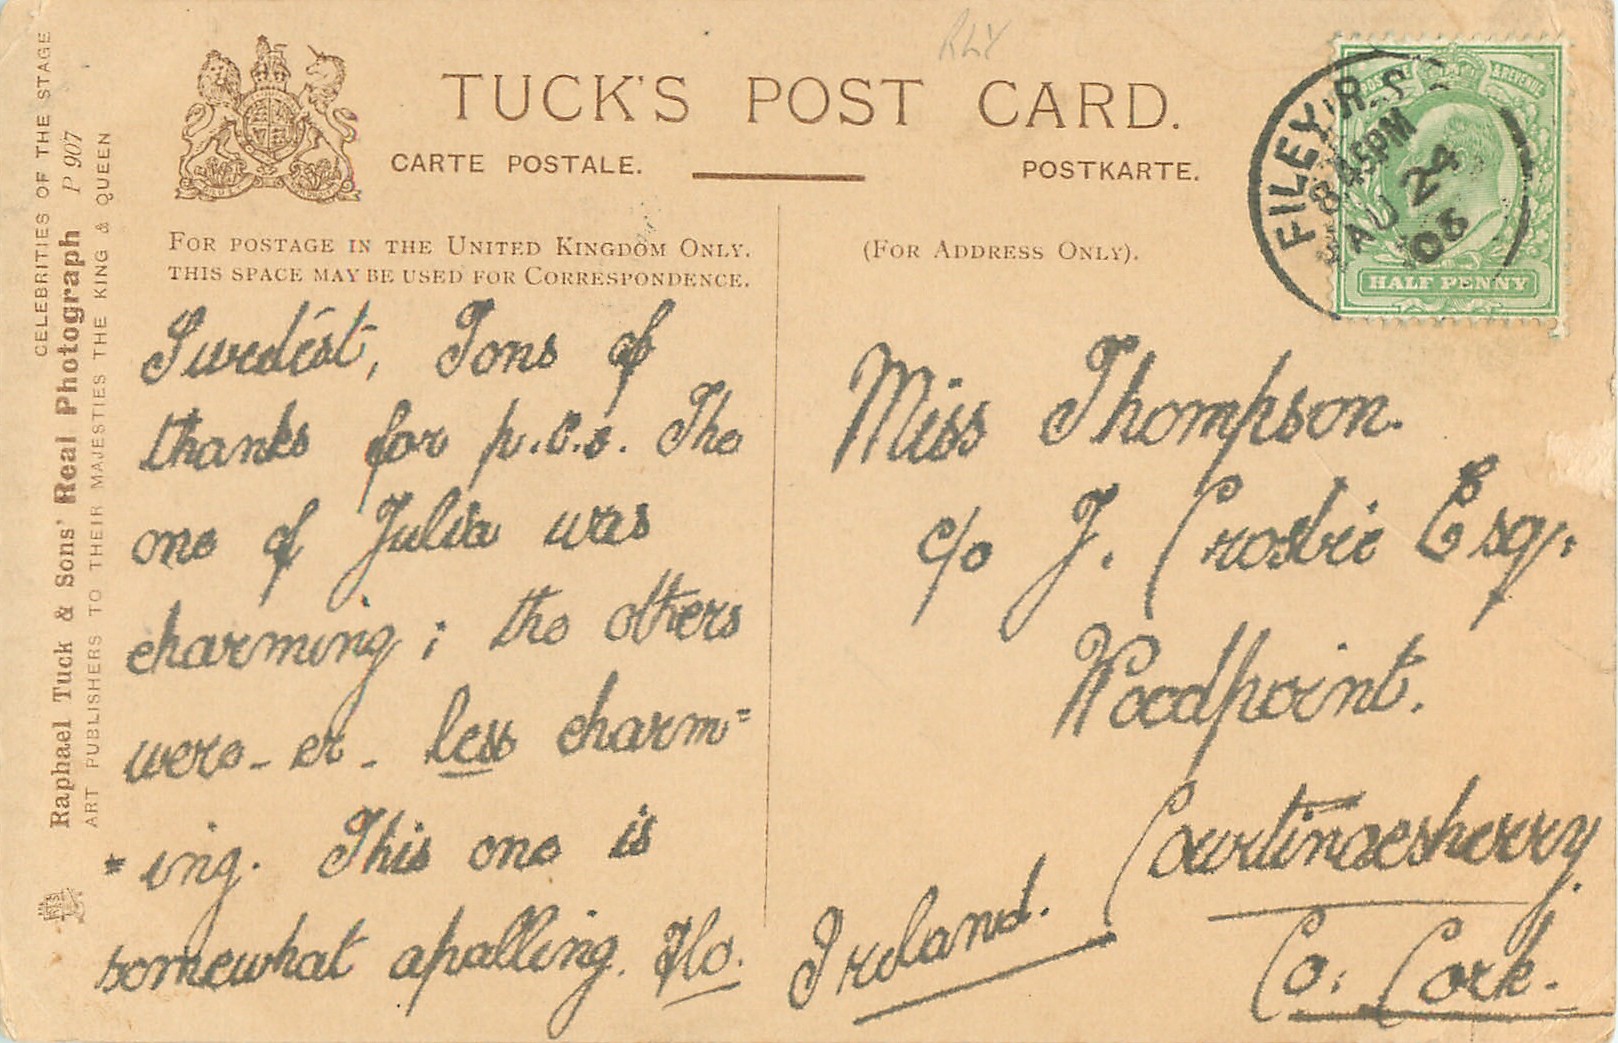 RLY
TUCK'S POST CARD.
CARTE POSTALE.
POSTKARTE.
FOR POSTAGE IN THE UNITED KINGDOM ONLY.
THIS SPACE MAY BE USED FOR CORRESPONDENCE.
(FOR ADDRESS ONLY).
CELEBRITIES OF THE STAGE
Raphael Tuck & Sons' Real Photograph P 907
ART PUBLISHERS TO THEIR MAJESTIES THE KING & QUEEN
& REVENUE
HALF PENNY
FILEY R.S.O
8 45PM
AU 24
06
Swedest, Tons of
thanks for p.c.s. The
one of Julia was
charming; the others
were - er - less charm=
=ing. This one is
somewhat apalling. Flo.
Miss Thompson.
c/o J. Crosbie Esq.
Woodpoint.
Courtmaesherry
Co: Cork.
Ireland.